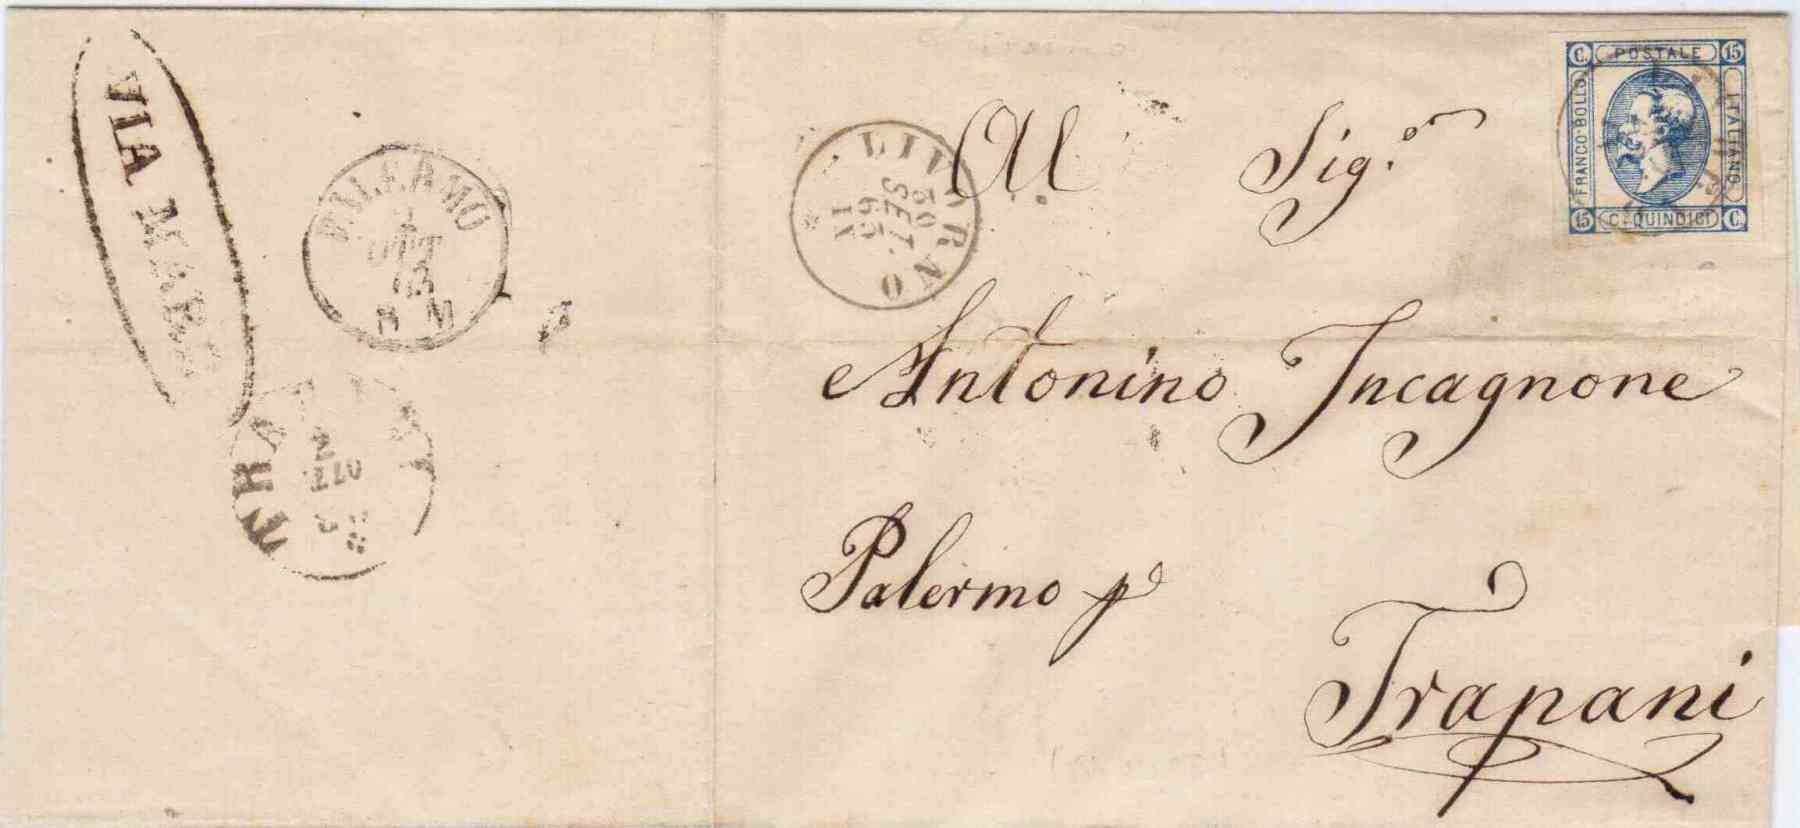 VIA MARE
PALERMO
2
OTT
63
8 M
TRAPANI
2
OTT
LIVORNO
30
SET.
63
Al Sig.r
Antonino Incagnone
Palermo p
Trapani
C. POSTALE 15
FRANCO BOLLO
ITALIANO
15 C. QUINDICI C.